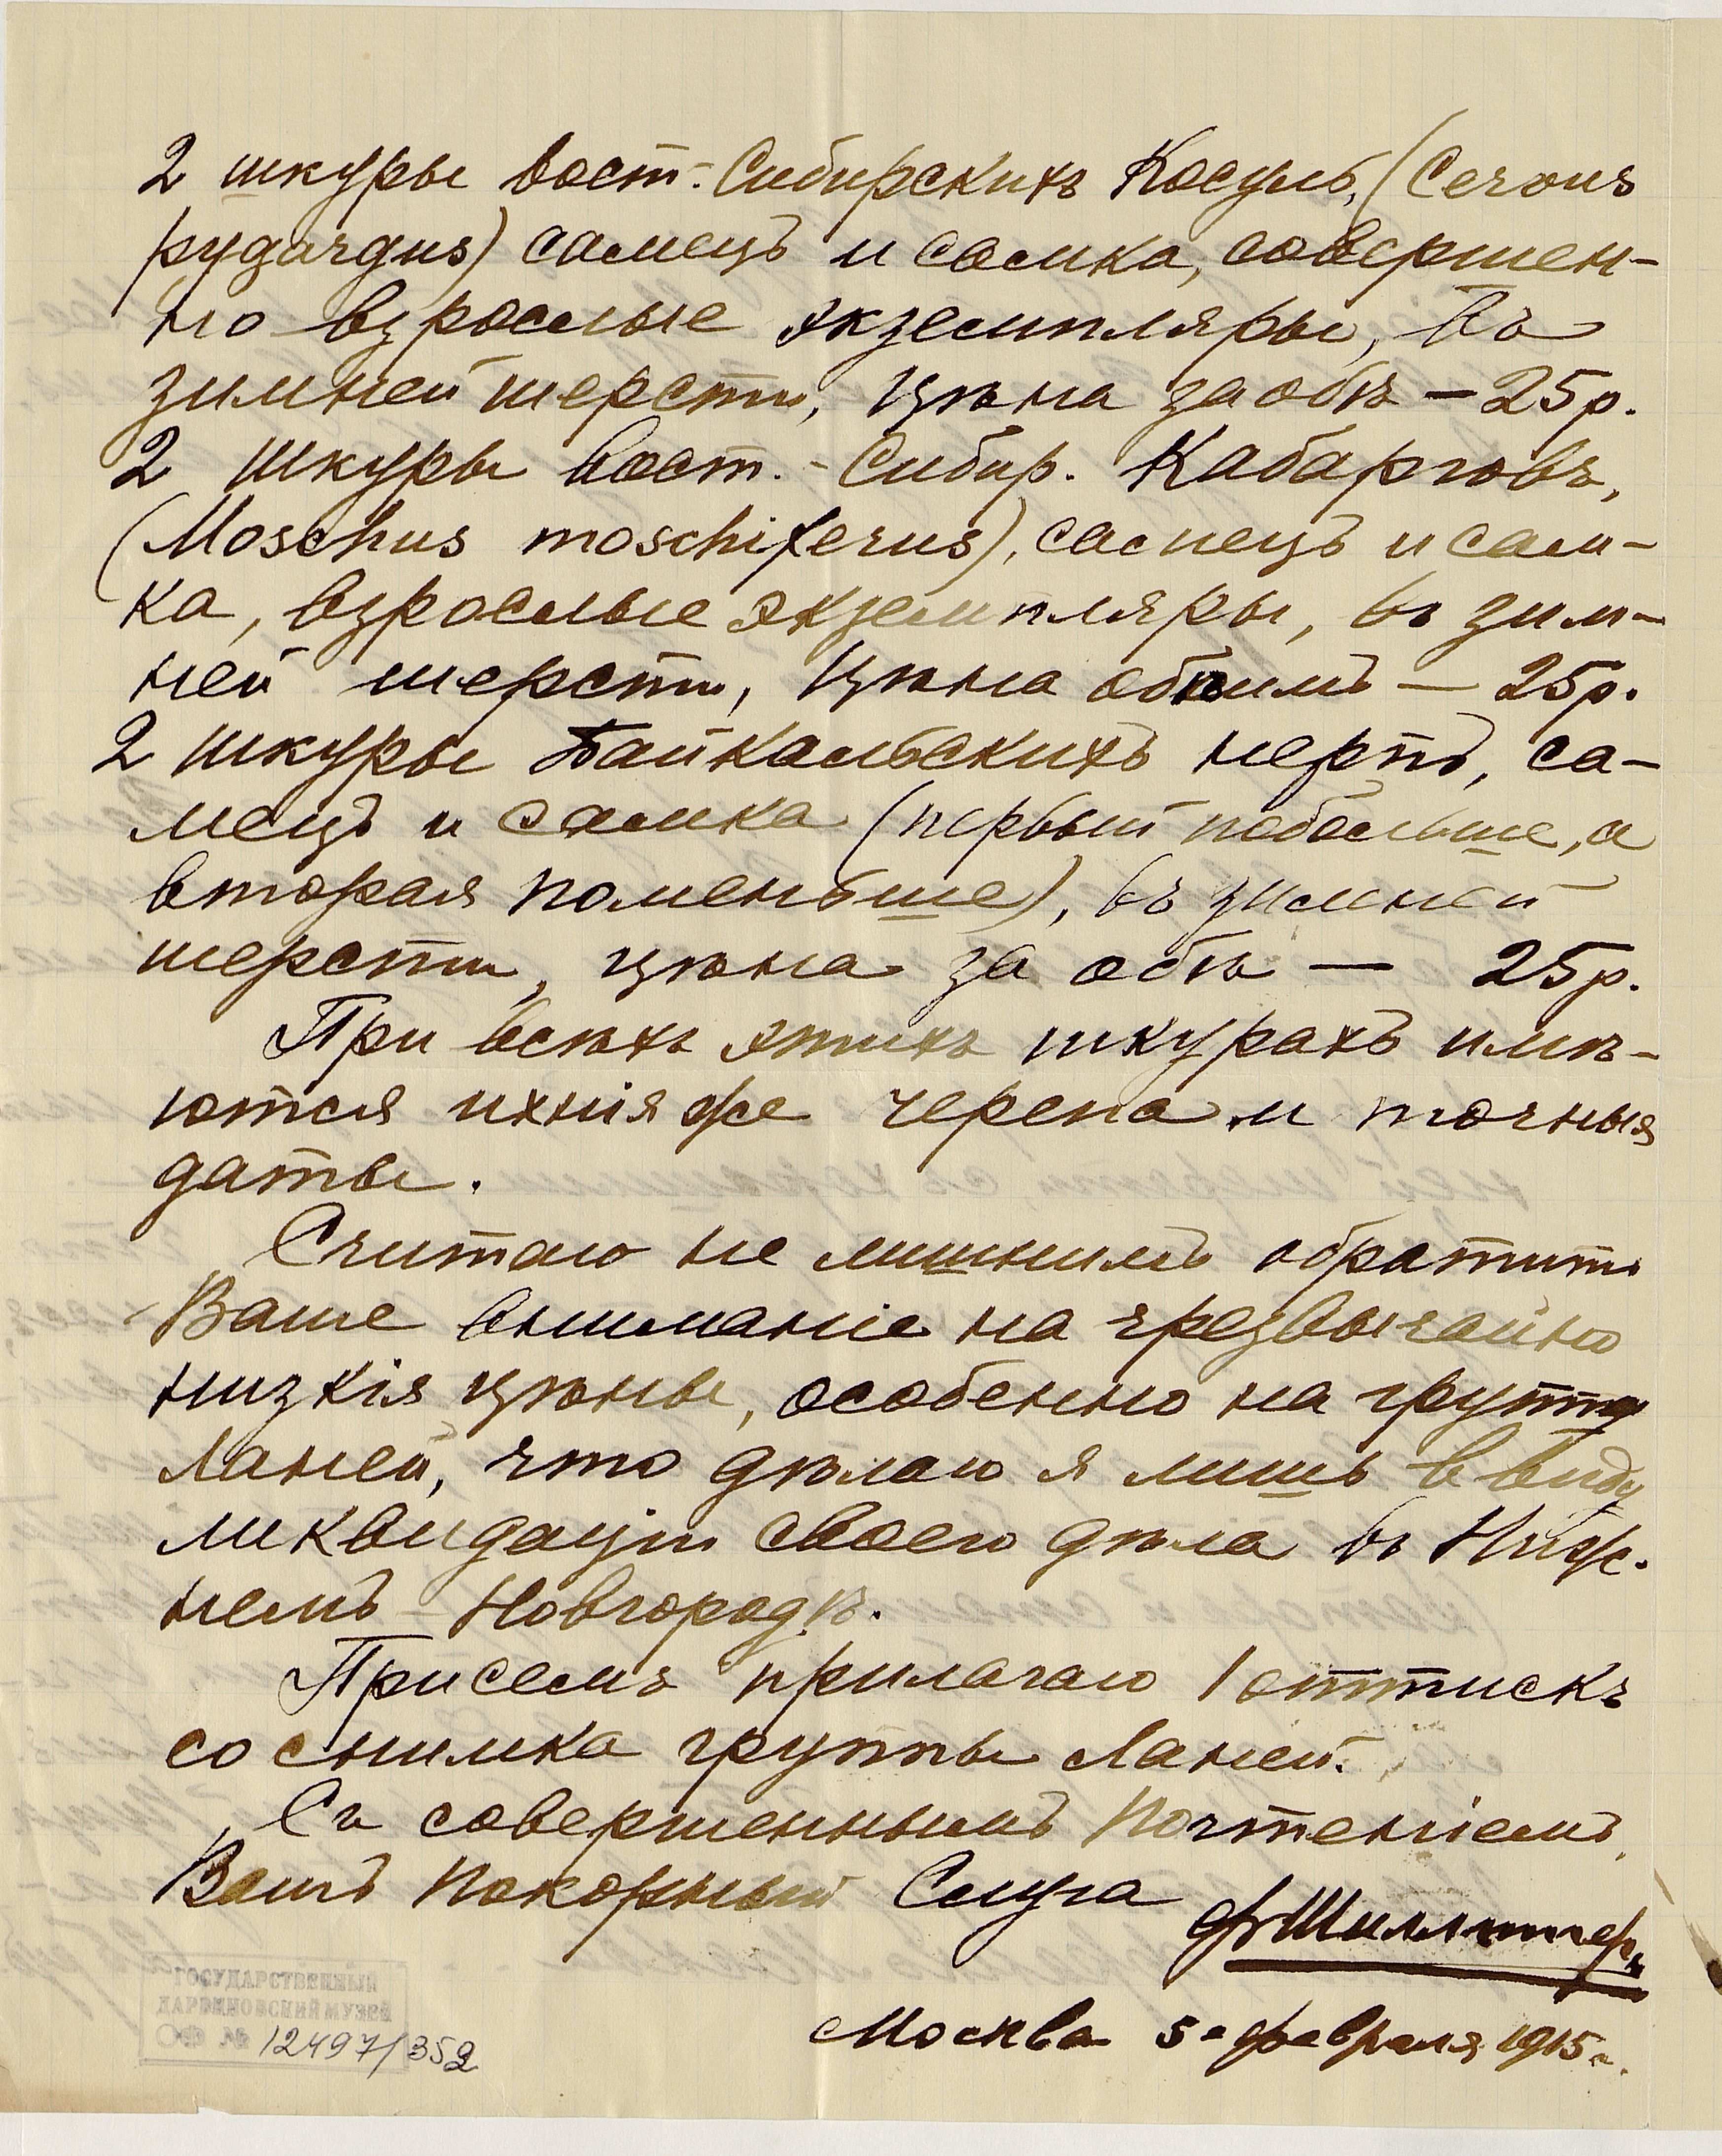 2 шкуры вост.-Сибирскихъ Косуль, (Cervus
pygargus) самецъ и самка, совершен-
но взрослые экземпляры, въ
зимней шерсти, цѣна за обѣ — 25р.
2 шкуры вост.-Сибир. Кабарговъ,
(Moschus moschiferus), самецъ и сам-
ка, взрослые экземпляры, въ зим-
ней шерсти, цѣна обѣимъ — 25р.
2 шкуры Байкальскихъ нерпъ, са-
мецъ и самка (первый побольше, а
вторая поменьше), въ зимней
шерсти, цѣна за обѣ — 25р.
При всѣхъ этихъ шкурахъ имѣ-
ются ихнія же черепа и точныя
даты.
Считаю не лишнимъ обратить
Ваше вниманіе на чрезвычайно
низкія цѣны, особенно на группу
Ланей, что дѣлаю я лишь ввиду
ликвидаціи своего дѣла въ Ниж-
немъ-Новгородѣ.
Присемъ прилагаю 1 оттискъ
со снимка группы Ланей.
Съ совершеннымъ Почтеніемъ,
Вашъ Покорный Слуга
Москва 5го февраля 1915г.
ГОСУДАРСТВЕННЫЙ
ДАРВИНОВСКИЙ МУЗЕЙ
ОФ № 12497/352